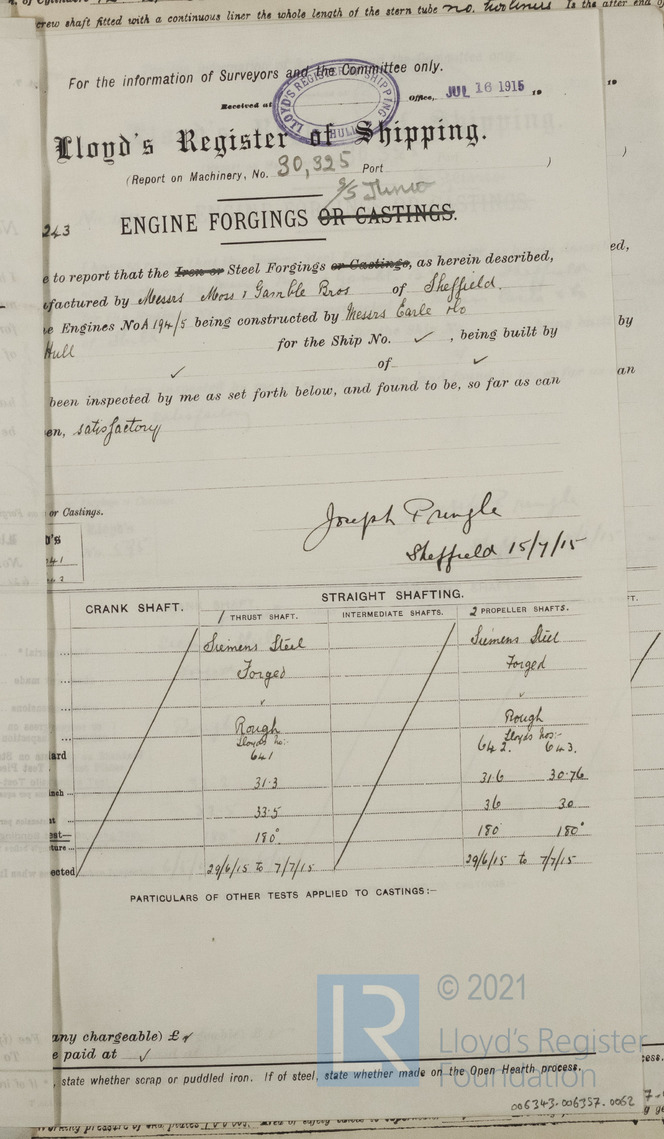 crew shaft fitted with a continuous liner the whole length of the stern tube no. two liners Is the after end of
For the information of Surveyors and the Committee only.
Received at Office, JUL 16 1915 19
LLOYD'S REGISTER OF SHIPPING HULL
Lloyd's Register of Shipping.
(Report on Machinery, No. 30,325 Port )
243 ENGINE FORGINGS OR CASTINGS.
e to report that the Iron or Steel Forgings or Castings, as herein described,
ufactured by Messrs Moss & Gamble Bros of Sheffield.
e Engines No A 194/5 being constructed by Messrs Earle & Co
Hull for the Ship No. ✓, being built by
✓ of ✓
been inspected by me as set forth below, and found to be, so far as can
en, satisfactory
or Castings.
Joseph Pringle
Sheffield 15/7/15
STRAIGHT SHAFTING.
CRANK SHAFT. 1 THRUST SHAFT. INTERMEDIATE SHAFTS. 2 PROPELLER SHAFTS.
Siemens Steel Siemens Steel
Forged Forged
✓ ✓
Rough Rough
Lloyds no:- Lloyds nos:-
641 642. 643.
31.3 31.6 30.76
33.5 36 30
180° 180 180°
ected 29/6/15 to 7/7/15 29/6/15 to 7/7/15
PARTICULARS OF OTHER TESTS APPLIED TO CASTINGS:—
© 2021
Lloyd's Register
Foundation
LR
any chargeable) £ ✓
e paid at ✓
, state whether scrap or puddled iron. If of steel, state whether made on the Open Hearth process.
006343-006357-0062